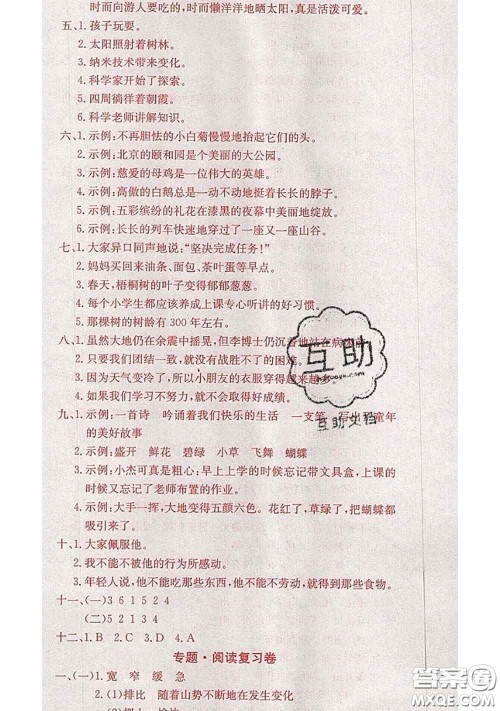 时而向游人要吃的,时而懒洋洋地晒太阳,真是活泼可爱。
五、1.孩子玩耍。
2.太阳照射着树林。
3.纳米技术带来变化。
4.科学家开始了探索。
5.四周徜徉着朝霞。
6.科学老师讲解知识。
六、1.示例:不再胆怯的小白菊慢慢地抬起它们的头。
2.示例:北京的颐和园是个美丽的大公园。
3.示例:慈爱的母鸡是一位伟大的英雄。
4.示例:高傲的白鹅总是一动不动地挺着长长的脖子。
5.示例:五彩缤纷的礼花在漆黑的夜幕中美丽地绽放。
6.示例:长长的列车快速地穿过了一座又一座山谷。
七、1.大家异口同声地说:“坚决完成任务!”
2.妈妈买回来油条、面包、茶叶蛋等早点。
3.春天,梧桐树的叶子变得郁郁葱葱。
4.每个小学生都应该养成上课专心听讲的好习惯。
5.那棵树的树龄有300年左右。
八、1.虽然大地仍在余震中摇晃,但李博士仍沉着地站在病
2.只要我们团结一致,就没有战胜不了的困难。
3.因为天气变冷了,所以小朋友的衣服穿得越来越
4.如果我们学习不努力,就不会取得好成绩。
九、1.示例:一首诗 吟诵着我们快乐的生活 一支笔 写出 童年
的美好故事
2.示例:盛开 鲜花 碧绿 小草 飞舞 蝴蝶
3.示例:小杰可真是粗心:早上上学的时候忘记带文具盒,上课的
时候又忘记了老师布置的作业。
4.示例:大手一挥,大地变得五颜六色。花红了,草绿了,把蝴蝶都
吸引来了。
十、1.大家佩服他。
2.我不能不被他的行为所感动。
3.年轻人说,他不能不吃那些东西,他不能不劳动,就得到那些食物。
十一、(一)3 6 1 5 2 4
(二)5 2 1 3 4
十二、1.B 2.C 3.D 4.A
专题·阅读复习卷
一、(一)1.宽 窄 缓 急
2.(1)排比 随着山势不断地在发生变化
互助
互助文档
答案圈
MXQE.COM